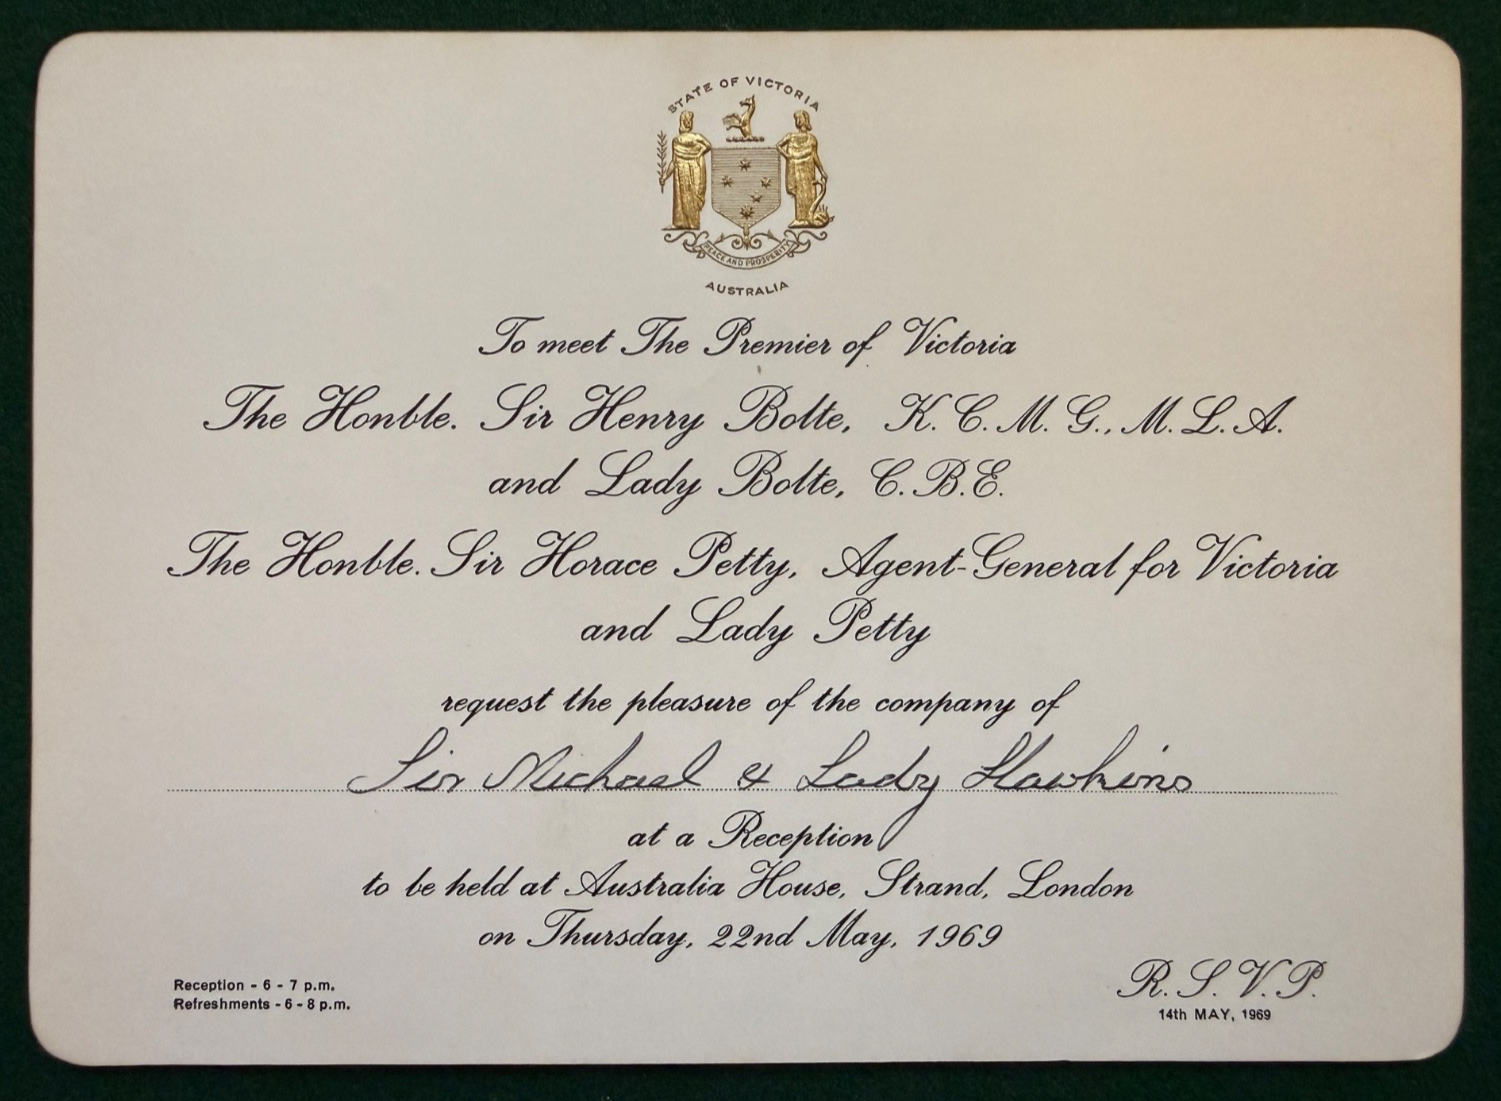 STATE OF VICTORIA
PEACE AND PROSPERITY
AUSTRALIA
To meet The Premier of Victoria
The Honble. Sir Henry Bolte, K.C.M.G., M.L.A.
and Lady Bolte, C.B.E.
The Honble. Sir Horace Petty, Agent-General for Victoria
and Lady Petty
request the pleasure of the company of
Sir Michael & Lady Hawkins
at a Reception
to be held at Australia House, Strand, London
on Thursday, 22nd May, 1969
Reception - 6 - 7 p.m.
Refreshments - 6 - 8 p.m.
R.S.V.P.
14th MAY, 1969